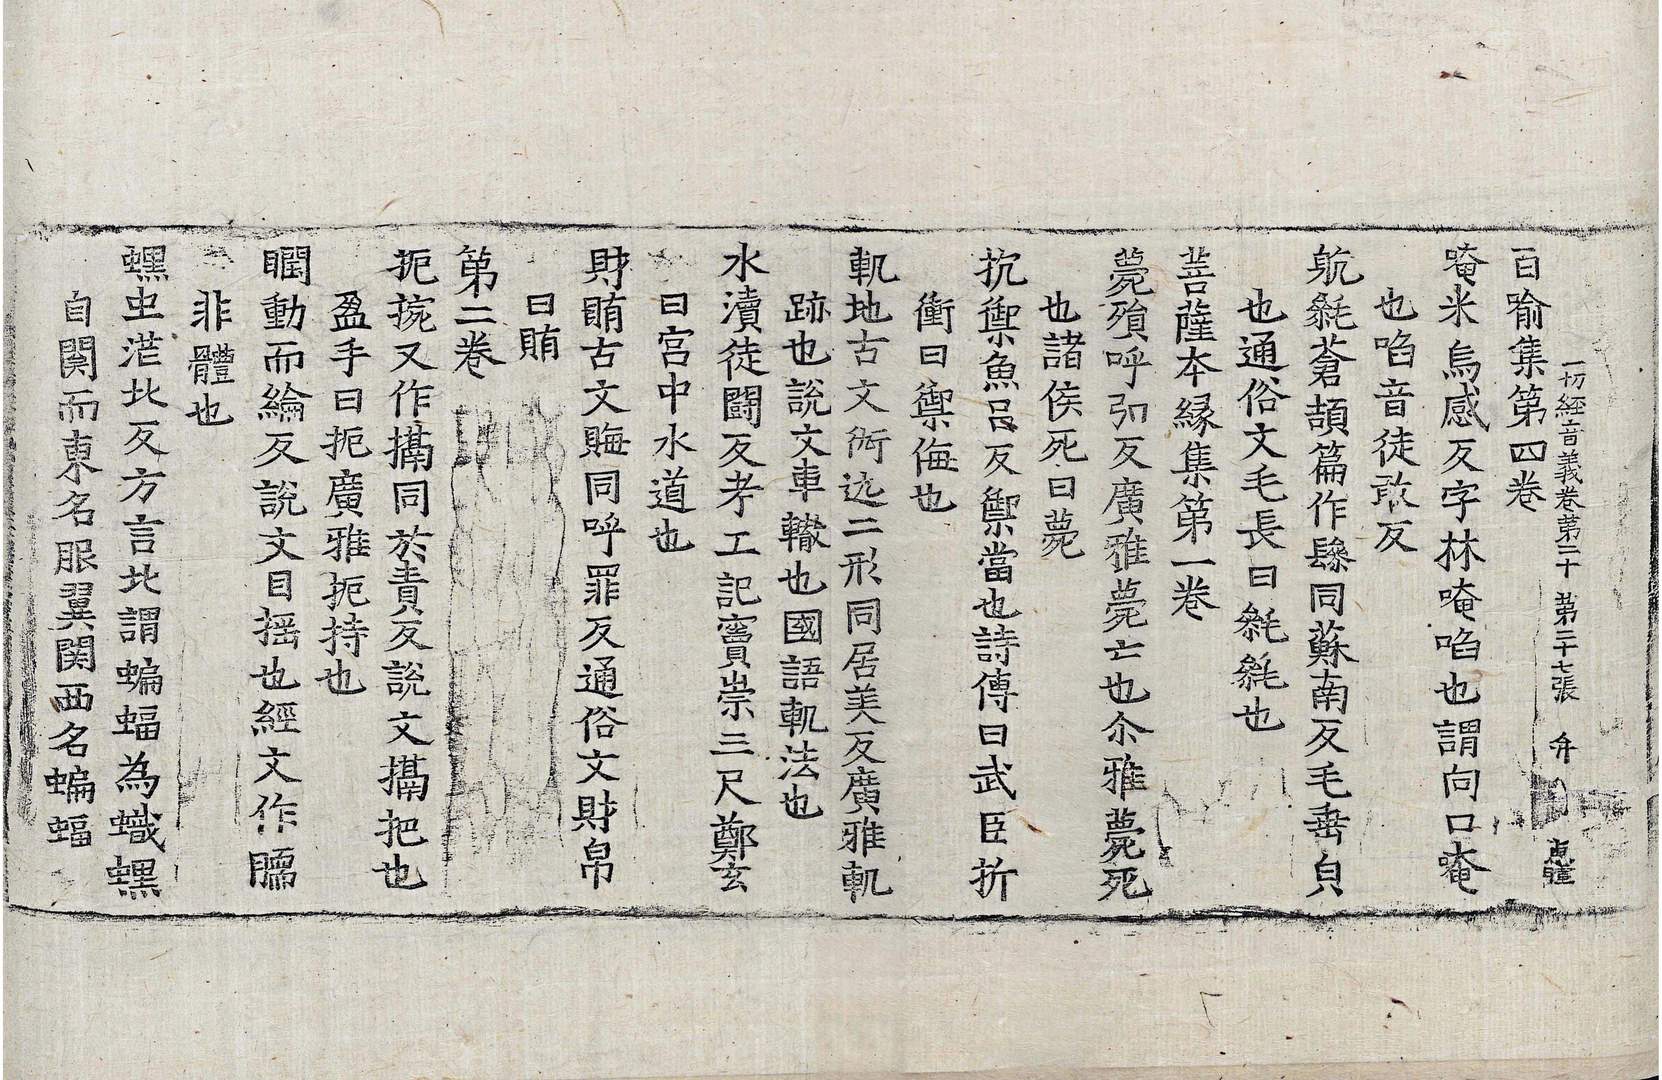 一切経音義卷第二十 第二十七張 弁
百喻集第四卷
唵米烏感反字林唵啗也謂向口唵
也啗音徒敢反
毼毵蒼頡篇作𣯶同蘇南反毛垂皃
也通俗文毛長曰毵毵也
菩薩本縁集第一卷
薨殞呼弘反廣雅薨亡也尒雅薨死
也諸侯死曰薨
抗禦魚呂反禦當也詩傳曰武臣折
衝曰禦侮也
軌地古文𨒌迒二形同居美反廣雅軌
跡也說文車轍也國語軌法也
水瀆徒鬪反考工記竇崇三尺鄭玄
曰宮中水道也
財賄古文賄同呼罪反通俗文財帛
曰賄
第二卷
扼捥又作搹同於責反說文搹把也
盈手曰扼廣雅扼持也
瞤動而綸反說文目揺也經文作𦡀
非體也
螺虫茫北反方言北謂蝙蝠為蟙䘃
自関而東名服翼関西名蝙蝠